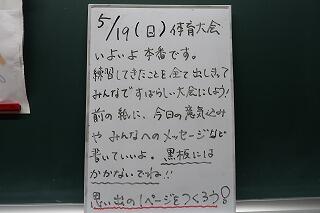 5/19(日)体育大会
いよいよ本番です。
練習してきたことを全て出しきって
みんなですばらしい大会にしよう!
前の紙に、今日の意気込み
や みんなへのメッセージなど
書いていいよ。黒板には
かかないでね!!
思い出の1ページをつくろう!